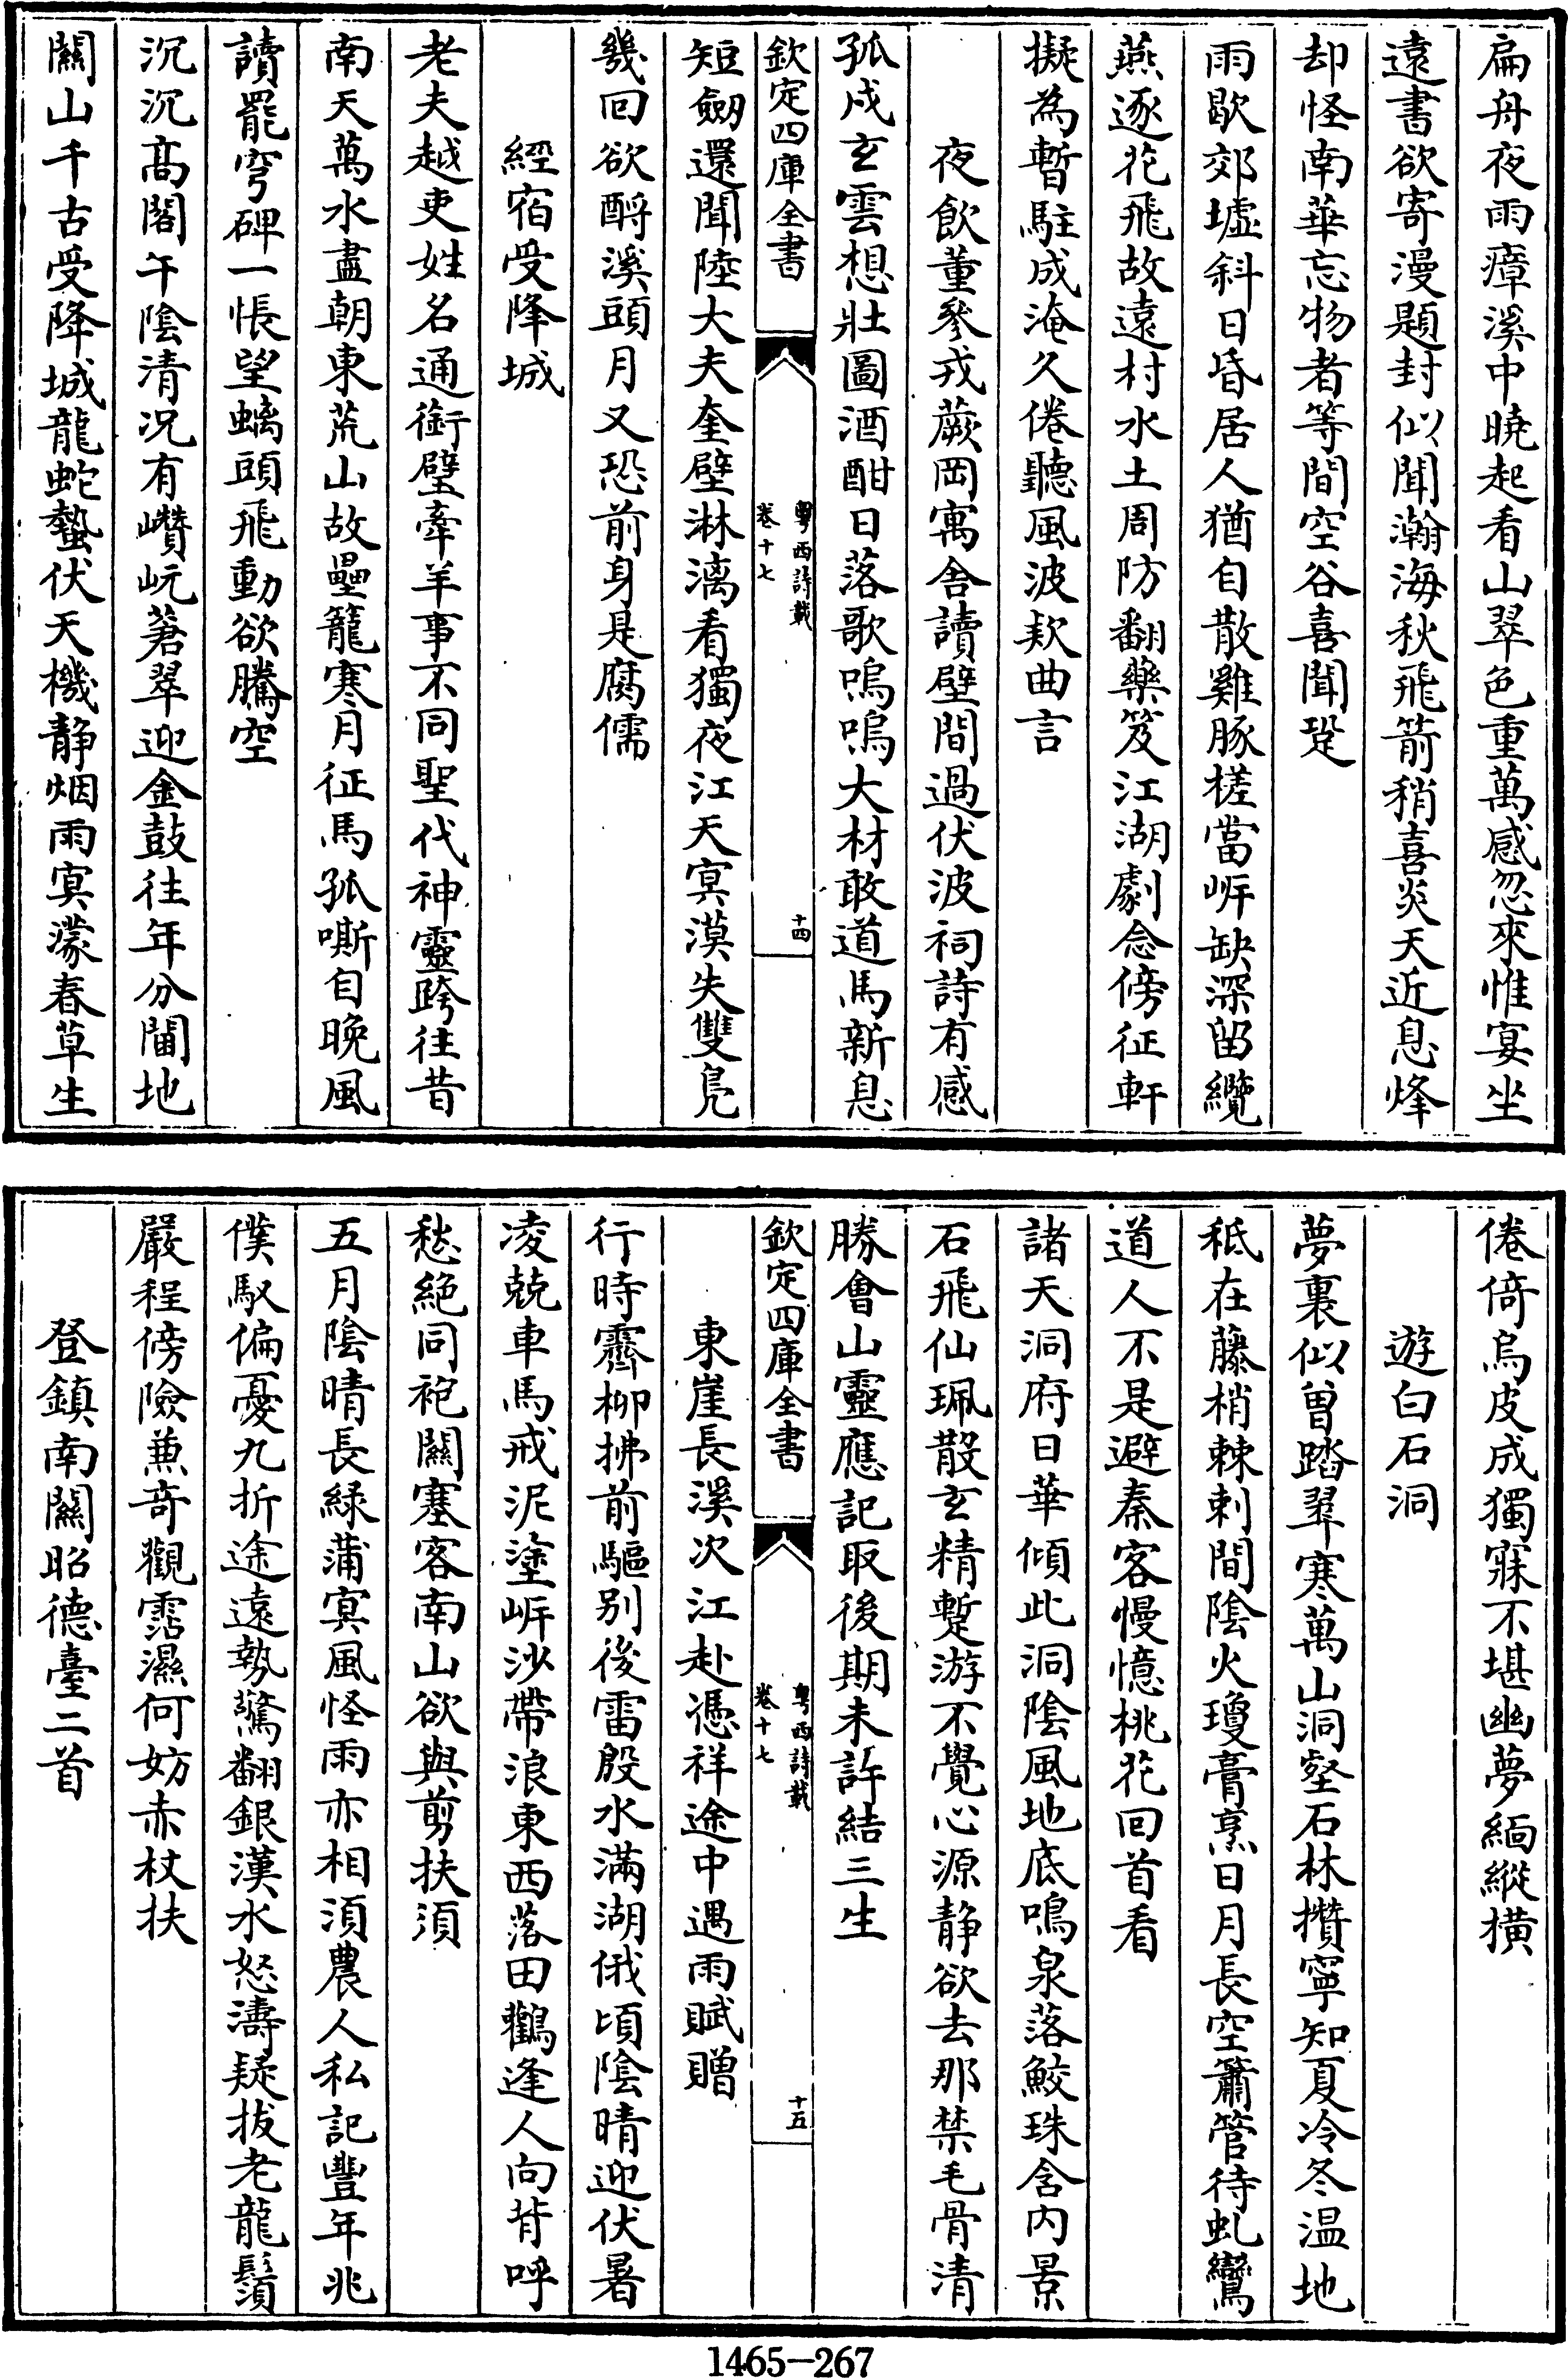 扁舟夜雨瘴溪中曉起看山翠色重萬感忽來惟宴坐
遠書欲寄漫題封似聞瀚海秋飛箭稍喜炎天近息烽
却怪南華忘物者等間空谷喜聞跫
雨歇郊墟斜日昏居人猶自散雞豚槎當㟁缺深留纜
燕逐花飛故遠村水土周防翻藥笈江湖劇念傍征軒
擬為暫駐成淹久倦聽風波欵曲言
夜飲董參戎蕨岡寓舍讀壁間過伏波祠詩有感
孤戍玄雲想壯圖酒酣日落歌嗚嗚大材敢道馬新息
欽定四庫全書
粵西詩載
卷十七
十四
短劒還聞陸大夫奎壁淋漓看獨夜江天㝠漠失雙鳧
幾回欲酹溪頭月又恐前身是腐儒
經宿受降城
老夫越吏姓名通銜璧牽羊事不同聖代神靈跨往昔
南天萬水盡朝東荒山故壘籠寒月征馬孤嘶自晚風
讀罷穹碑一悵望螭頭飛動欲騰空
沉沉髙閣午陰清况有巑岏蒼翠迎金鼓往年分閫地
關山千古受降城龍蛇蟄伏天機静烟雨㝠濛春草生
倦倚烏皮成獨寐不堪幽夢緬縱横
遊白石洞
夢裏似曽踏翠寒萬山洞壑石林攢寧知夏冷冬温地
秪在藤梢棘刺間陰火瓊膏烹日月長空簫管待虬鸞
道人不是避秦客慢憶桃花回首看
諸天洞府日華傾此洞陰風地底鳴泉落鮫珠含内景
石飛仙珮散玄精蹔游不覺心源静欲去那禁毛骨清
勝會山靈應記取後期未許結三生
欽定四庫全書
粵西詩載
卷十七
十五
東崖長溪次江赴憑祥途中遇雨賦贈
行時霽柳拂前驅别後雷殷水滿湖俄頃陰晴迎伏暑
凌兢車馬戒泥塗㟁沙帶浪東西落田鸛逢人向背呼
愁絶同袍關塞客南山欲與剪扶須
五月陰晴長緑蒲㝠風怪雨亦相須農人私記豐年兆
僕馭偏憂九折途遠勢驚翻銀漢水怒濤疑拔老龍鬚
嚴程傍險兼奇觀霑濕何妨赤杖扶
登鎮南關昭德臺二首
1465-267